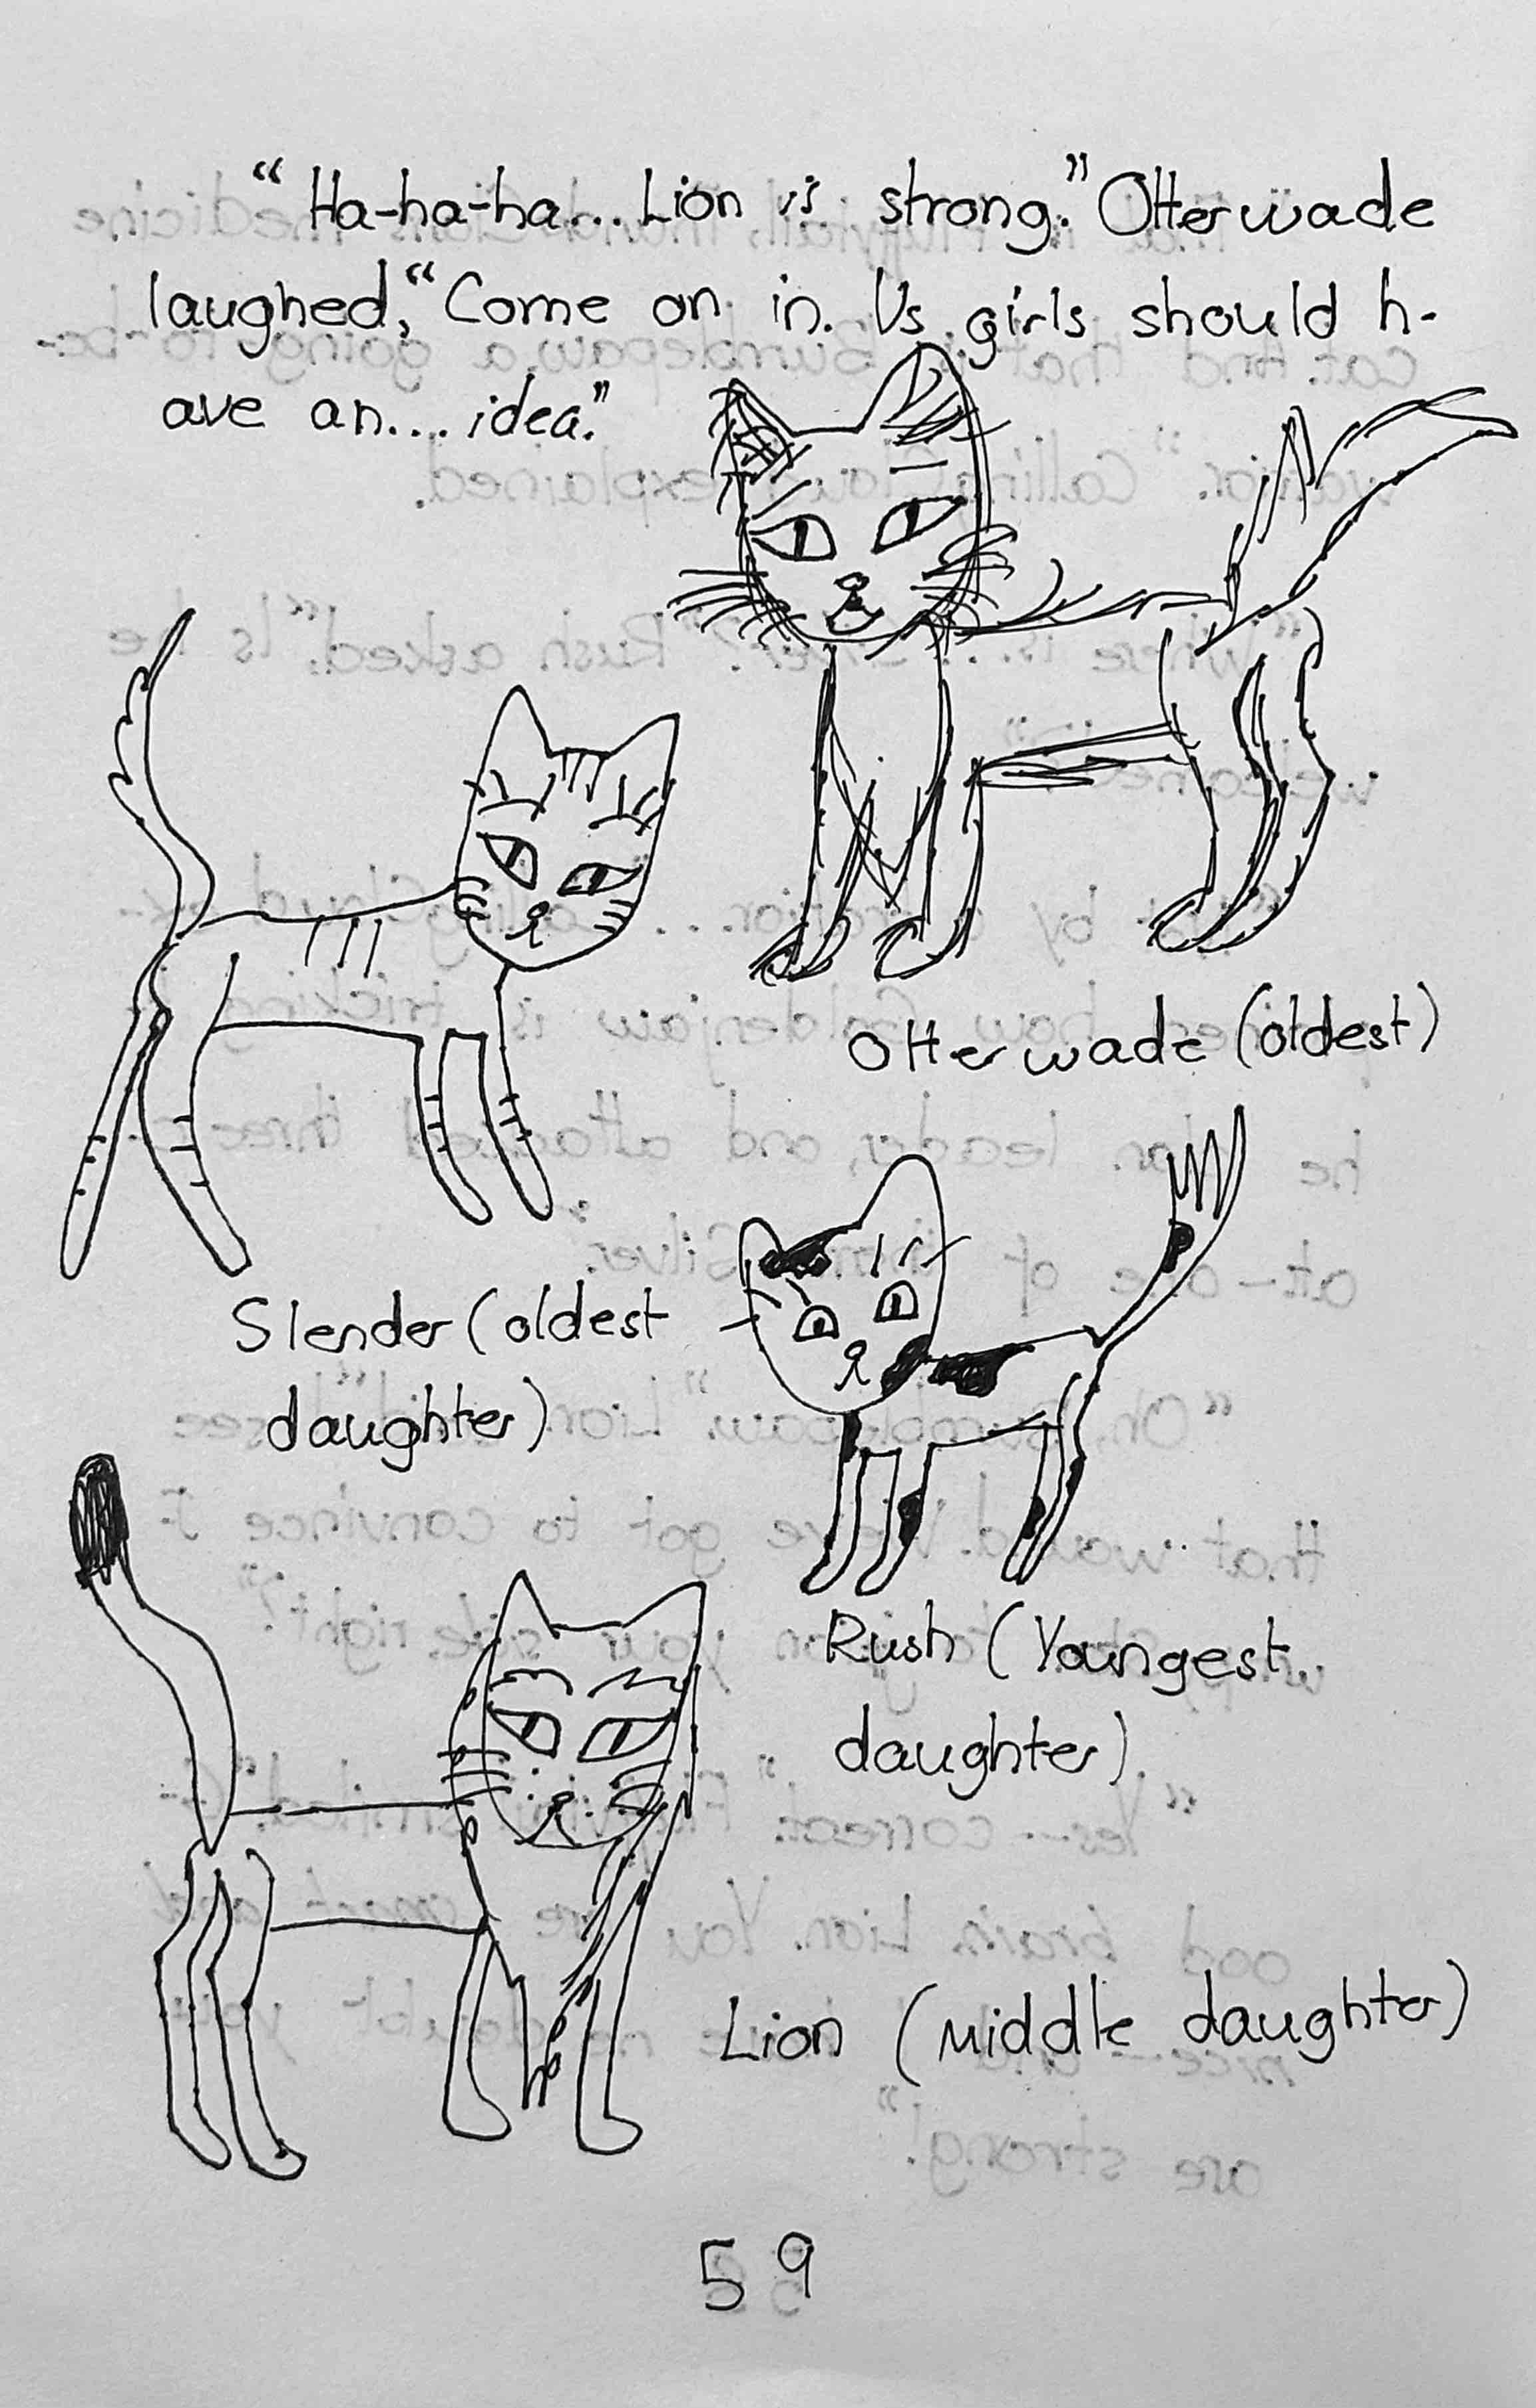 “Ha-ha-ha... Lion is strong.” Otterwade
laughed, “Come on in. Us girls should h-
ave an.... idea.”
Otterwade (oldest)
Slender (oldest
daughter)
Rush (Youngest
daughter)
Lion (middle daughter)
59